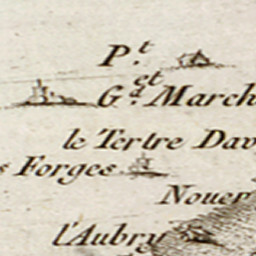 P.t
et
G.d March
le Tertre Dav
s Forges
Nouer
l'Aubry